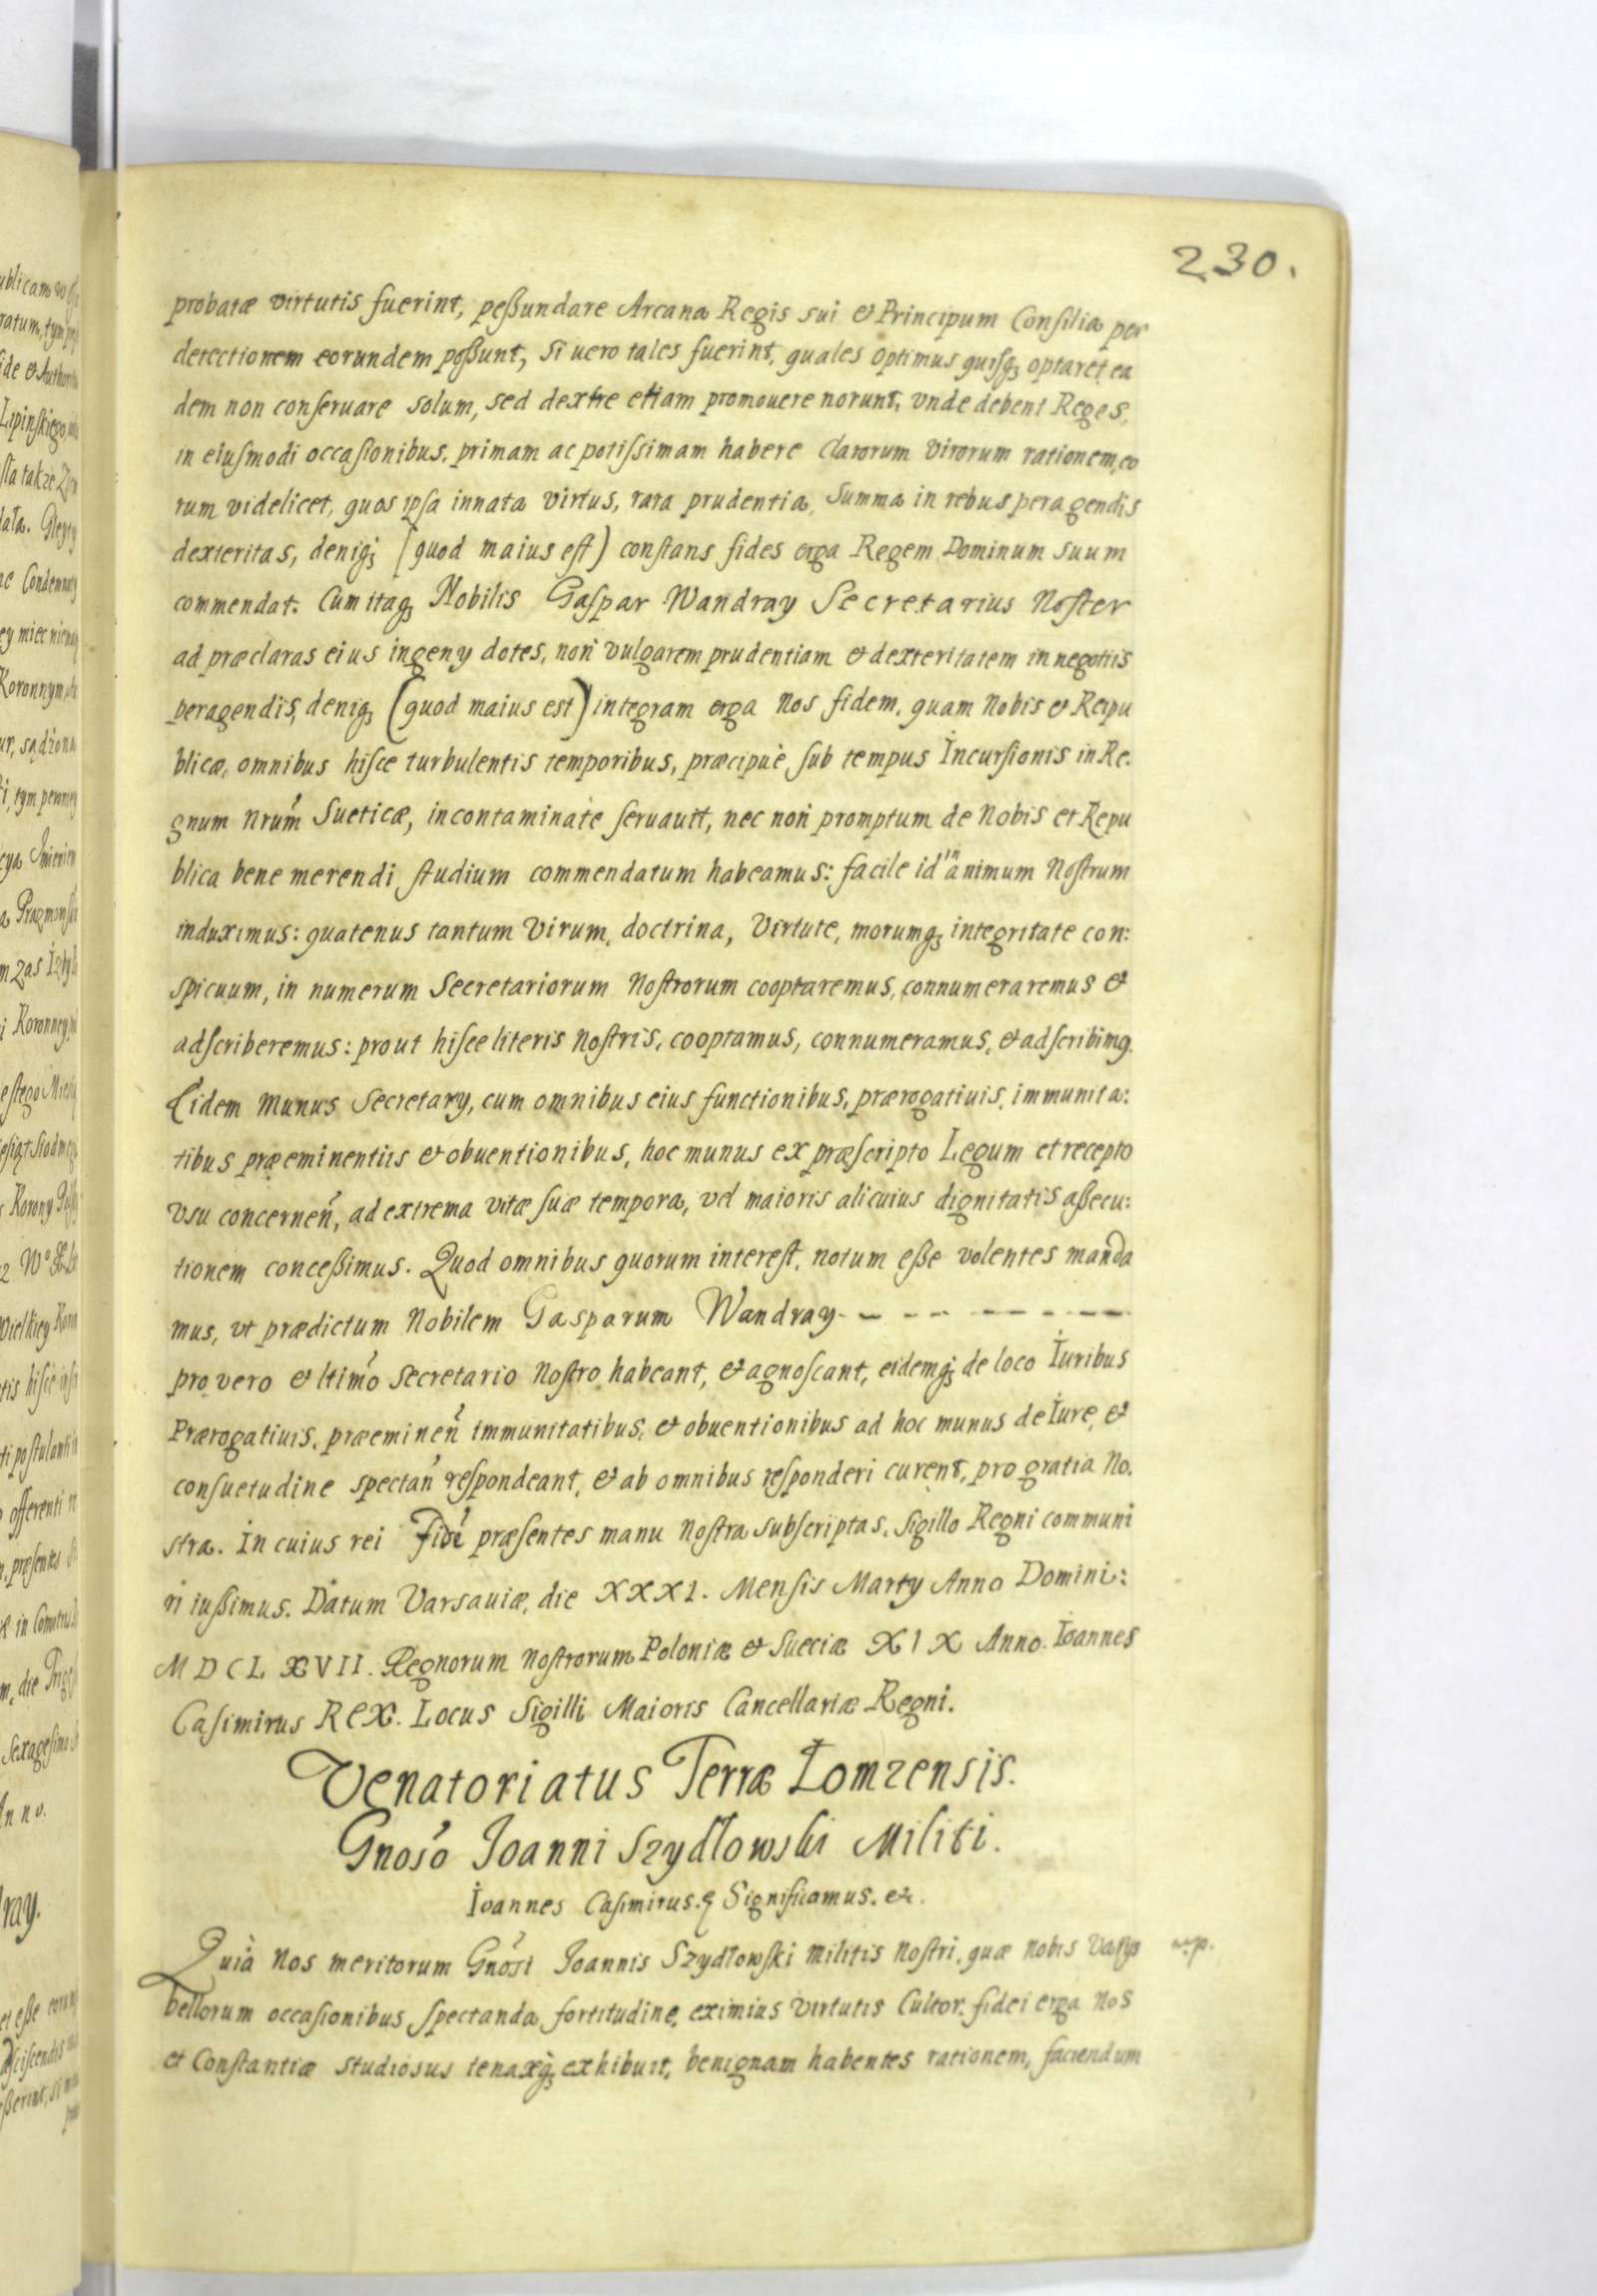 230.
probatæ virtutis fuerint, peßundare Arcana Regis sui & Principum Consilia per
detectionem eorundem poßunt, si uero tales fuerint, quales optimus quisq; optaret ea
dem non conseruare solum, sed dextre etiam promouere norunt, vnde debent Reges,
in eiusmodi occasionibus, primam ac potissimam habere clarorum virorum rationem, eo
rum videlicet, quos ipsa innata virtus, rara prudentia, summa in rebus peragendis
dexteritas, deniq; (quod maius est) constans fides erga Regem Dominum suum
commendat. Cum itaq; Nobilis Gaspar Wandray Secretarius Noster
ad præclaras eius ingeny dotes, non vulgarem prudentiam & dexteritatem in negotiis
peragendis, deniq; (quod maius est) integram erga Nos fidem, quam Nobis & Reipu
blicæ, omnibus hisce turbulentis temporibus, præcipuè sub tempus Incursionis in Re-
gnum Nrum Sueticæ, incontaminate seruauit, nec non promptum de Nobis et Repu
blica bene merendi studium commendatum habeamus: facile id in animum Nostrum
induximus: quatenus tantum Virum, doctrina, Virtute, morumq; integritate con:
spicuum, in numerum Secretariorum Nostrorum cooptaremus, connumeraremus &
adscriberemus: prout hisce literis Nostris, cooptamus, connumeramus, & adscribimq.
Eidem Munus Secretary, cum omnibus eius functionibus, prærogatiuis, immunita:
tibus præeminentiis & obuentionibus, hoc munus ex præscripto Legum et recepto
vsu concernen, ad extrema vitæ suæ tempora, vel maioris alicuius dignitatis aßecu:
tionem conceßimus. Quod omnibus quorum interest, notum eße volentes manda
mus, vt prædictum Nobilem Gasparum Wandray - - - - - - - -
pro vero & ltimo Secretario Nostro habeant, & agnoscant, eidemq; de loco Iuribus
Prærogatiuis, præeminen immunitatibus, & obuentionibus ad hoc munus de Iure, &
consuetudine spectan respondeant, & ab omnibus responderi curent, pro gratia No-
stra. In cuius rei Fidē præsentes manu Nostra subscriptas, Sigillo Regni communi
ri iußimus. Datum Varsauiæ, die XXXI. Mensis Marty Anno Domini:
MDCLXVII. Regnorum Nostrorum Poloniæ & Sueciæ XIX Anno. Ioannes
Casimirus REX. Locus Sigilli Maioris Cancellariæ Regni.
Venatoriatus Terræ Łomzensis.
Gnoso Joanni Szydłowski Militi.
Ioannes Casimirus. Significamus. etc.
Quià Nos meritorum Gnosi Joannis Szydłowski Militis Nostri, quæ Nobis Varys
bellorum occasionibus, spectanda fortitudine, eximius virtutis Cultor, fidei erga Nos
et Constantiæ studiosus tenaxq; exhibuit, benignam habentes rationem, faciendum